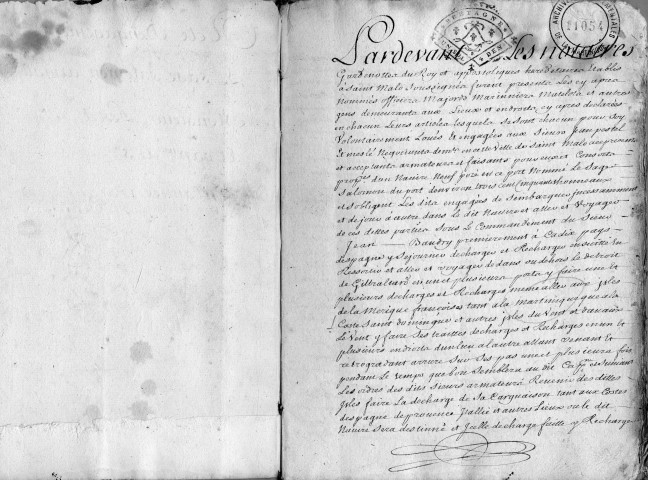 BRETAGNE
11054
Pardevant Les notaires
Gardenottes du Roy et appostoliques hereditaires Etablis
à Saint Malo soussignés furent presents Les cy aprés
Nommés officiers Majors Mariniers Matelots et autres
gens demeurants aux Lieux et endroits cy apres declarés
en chacun Leurs articles lesquels se sont chacun pour soy
Volontairement Loués & engagés aux Sieurs Jean
& negociants demts en cette Ville de Saint Malo cy presents
et acceptants armateurs et faisants pour eux Consorts
propres du Navire Neuf posé en ce port Nommé Le Sage
Salomon du port d'environ trois cent cinquante thonneaux
et s'obligent Les dits engagés de S'embarquer incessamment
et de jour à autre dans le dit Navire et aller et Voyager
de ces dittes parties Sous Le Commandement du Sieur
Jean — Baudry premierement à Cadix pays
despagne y Sejourner decharger et Recharger ensuitte En
Ressortir et aller et voyager dedans ou dehors le detroit
de Giltraltard en un et plusieurs ports y faire une &
plusieurs decharges et Recharges mesme aller aux Isles
de la Merique françoises tant à la Martinique qu'a la
Coste Saint domingue et autres isles du Vent et dessous
Le Vent y faire des traittes decharges et Recharges en un &
plusieurs endroits d'un lieu a l'autre allant venant &
retrogradant arriere Sur Ses pas une et plusieurs fois
pendant Le temps que bon Semblera au dit Capne Suivant
Les ordres des dits Sieurs armateurs Revenir des dittes
Isles faire La decharge de Sa Carguaison tant aux Costes
despagne de provence Itallie et autres Lieux où le dit
Navire Sera destinné et Icelle decharge faitte y Recharger